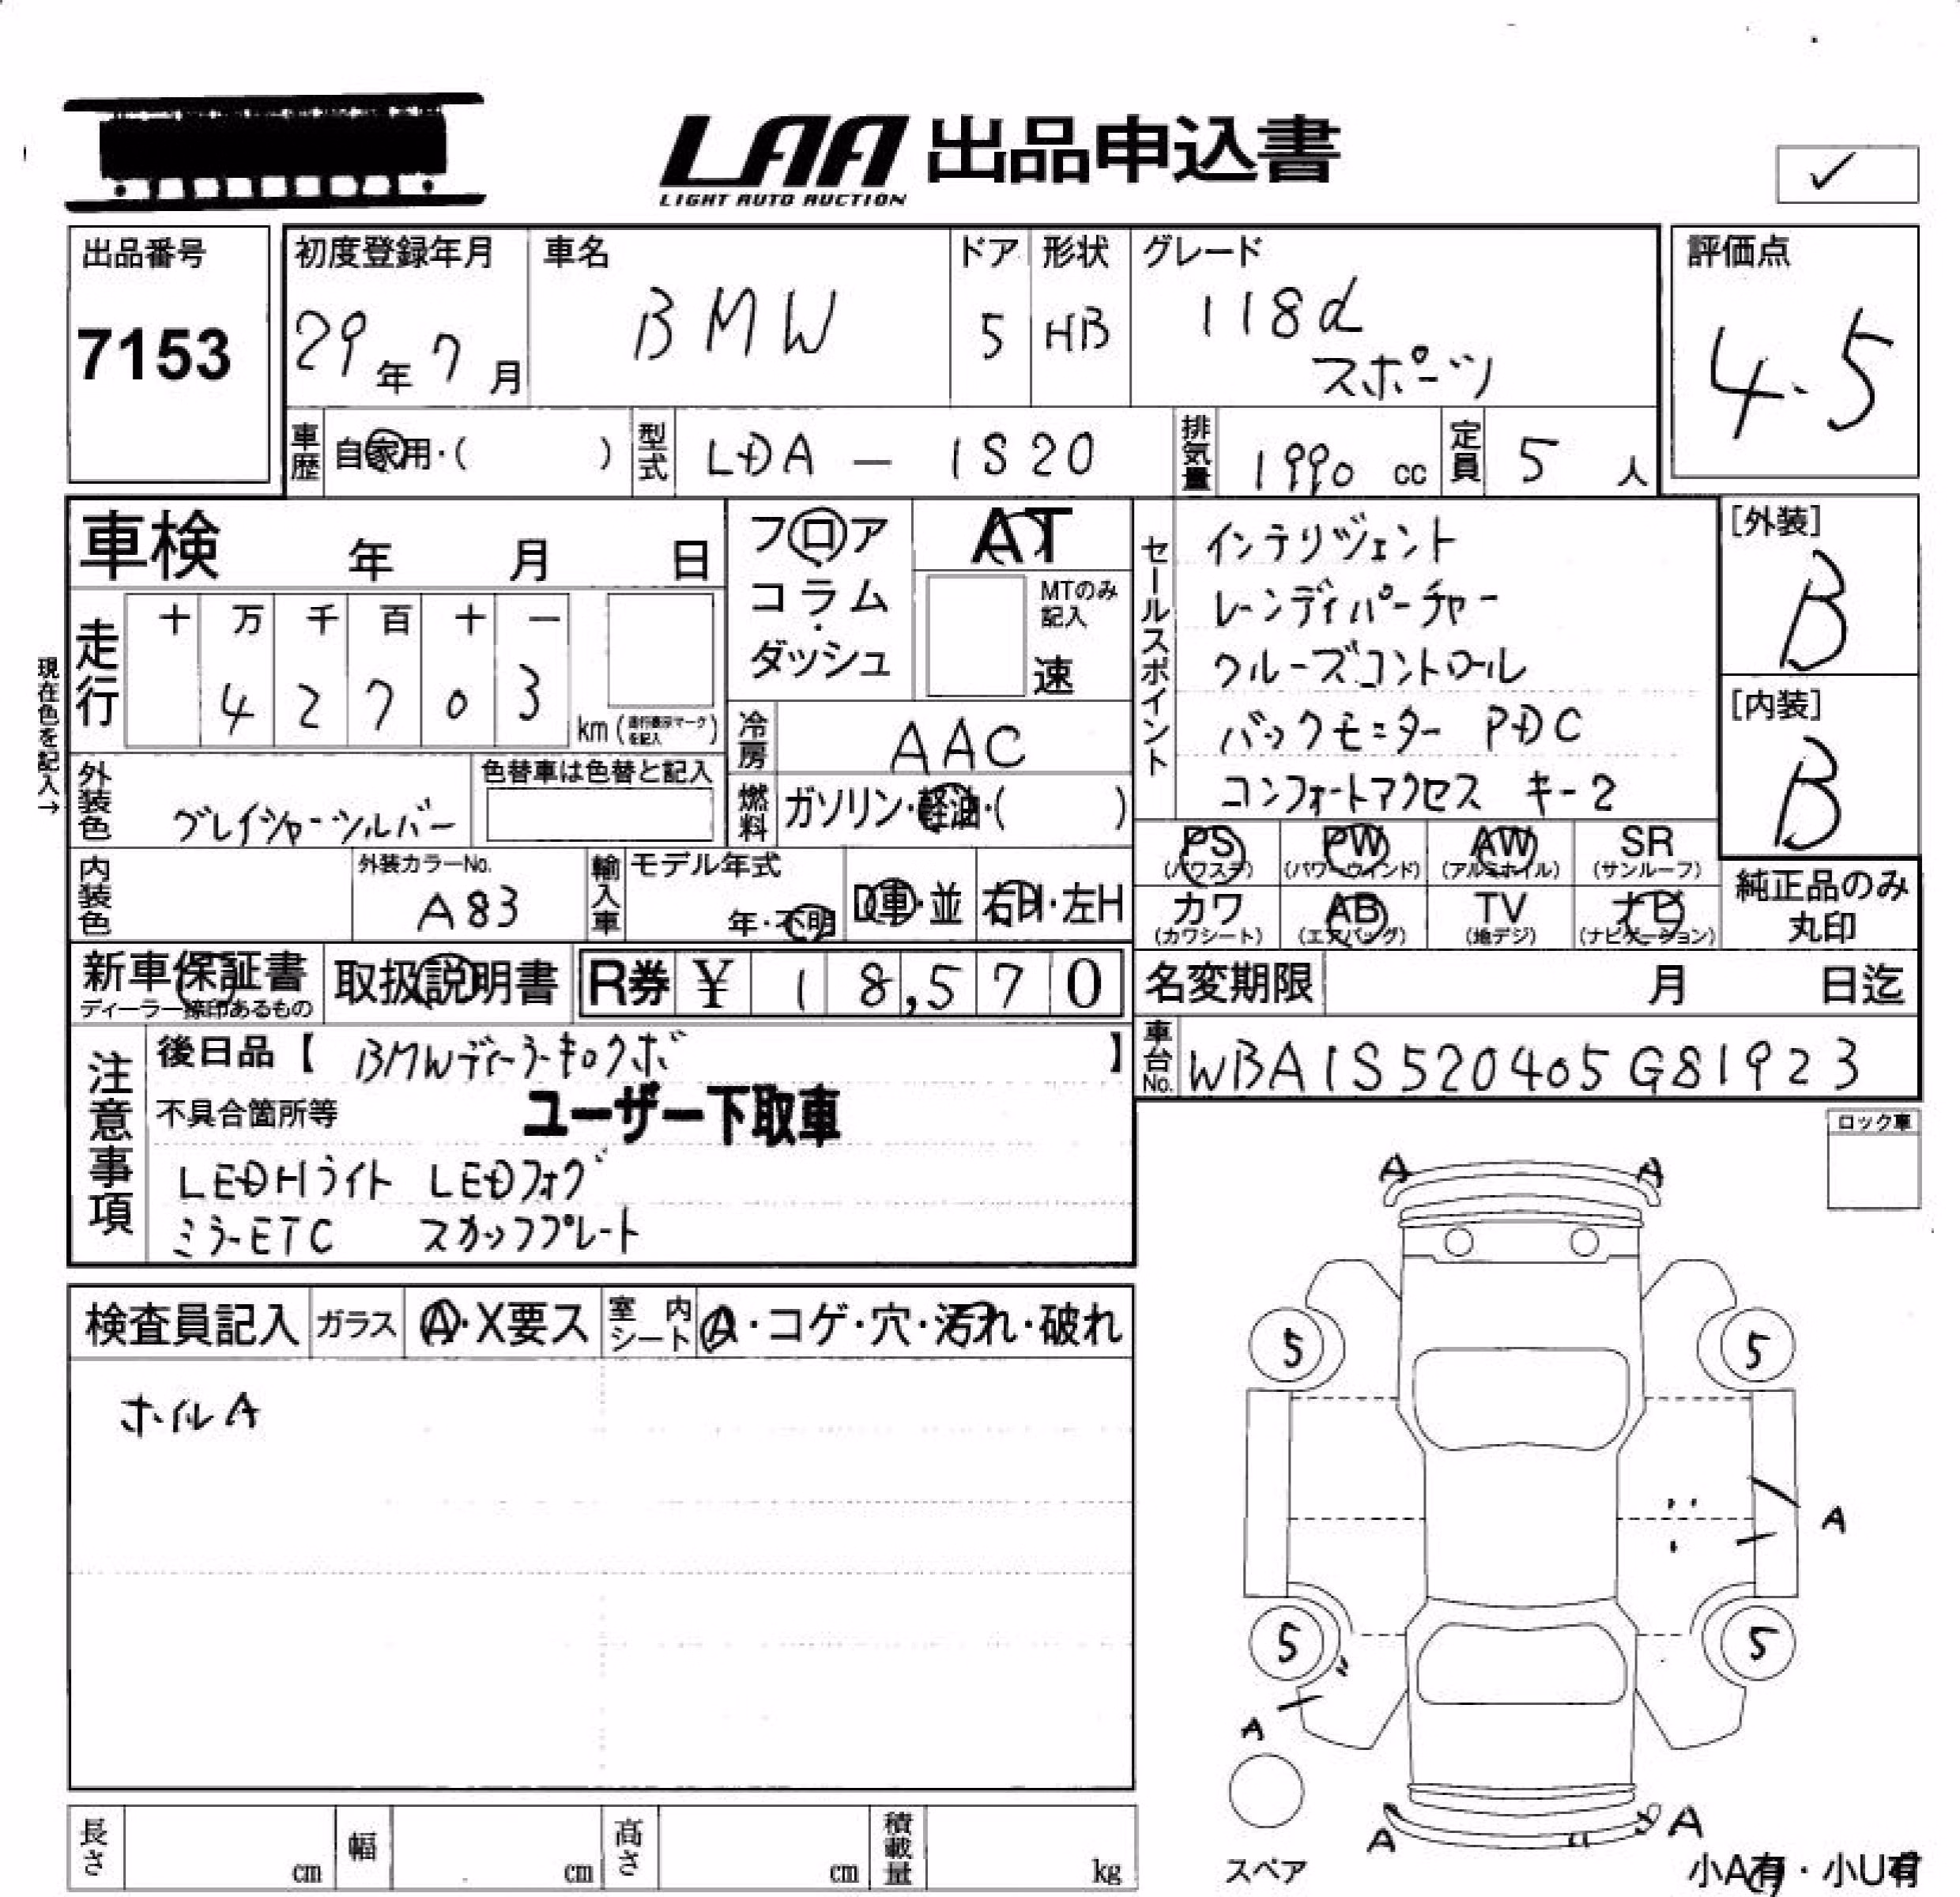 LAA 出品申込書
LIGHT AUTO AUCTION
✓
出品番号
7153
初度登録年月
29年7月
車名
BMW
ドア
5
形状
HB
グレード
118d
スポーツ
評価点
4.5
車歴 自家用・( )
型式 LDA - 1S20
排気量 1990 cc
定員 5 人
車検 年 月 日
走行
十 万 千 百 十 一
4 2 7 0 3
km(走行表示マークを記入)
現在色を記入→
外装色 グレイシャーシルバー
色替車は色替と記入
内装色
外装カラーNo.
A83
フロア
・
コラム
・
ダッシュ
AT
MTのみ
記入
速
冷房 AAC
燃料 ガソリン・軽油・( )
輸入車
モデル年式
年・不明
D車・並
右H・左H
セールスポイント
インテリジェント
レーンディパーチャー
クルーズコントロール
バックモニター PDC
コンフォートアクセス キー2
[外装]
B
[内装]
B
PS PW AW SR
(パワステ) (パワーウインド) (アルミホイル) (サンルーフ)
カワ AB TV ナビ
(カワシート) (エアバッグ) (地デジ) (ナビゲーション)
純正品のみ
丸印
新車保証書
ディーラー捺印あるもの
取扱説明書
R券 ¥ 18,570
名変期限 月 日迄
車台No. WBA1S520405G81923
注意事項
後日品【 BMWディーラーキロクボ 】
不具合箇所等
ユーザー下取車
LEDHライト LEDフォグ
ミラーETC スカッフプレート
ロック車
検査員記入
ガラス A・X要ス
室内シート A・コゲ・穴・汚れ・破れ
ホイルA
A A
5 5
A
5 5
A
A A
スペア
小A有・小U有
長さ cm
幅 cm
高さ cm
積載量 kg